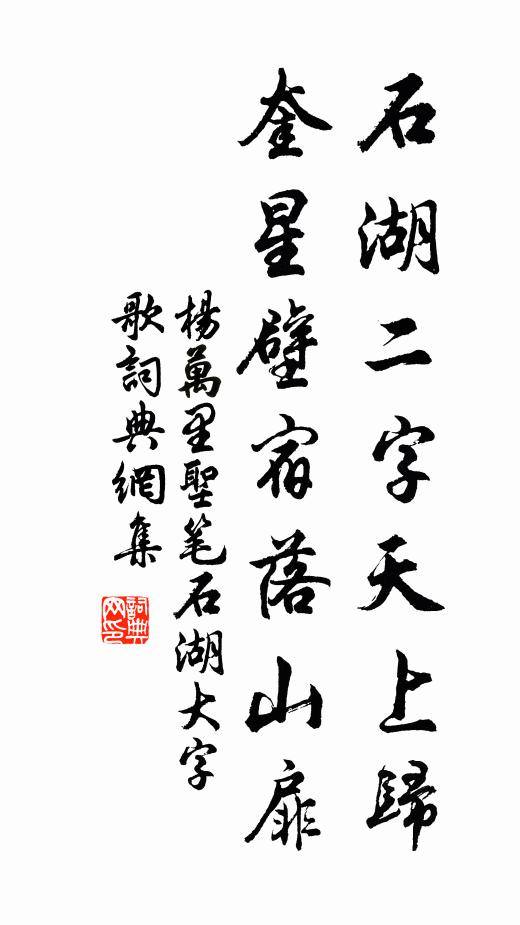 石湖二字天上歸
奎星壁宿落山扉
楊萬里聖笔石湖大字
歌詞典網集
詞典网印